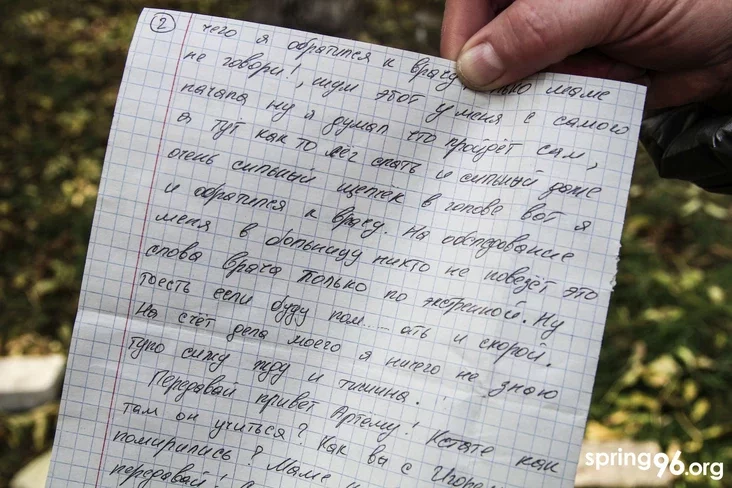 2
чего я обратился к врачу, только маме
не говори!, шум этот у меня с самого
начала ну я думал что пройдёт сам,
а тут как то лёг спать и сильный даже
очень сильный щелчек в голове вот я
и обратился к врачу. На обследование
меня в больницу никто не повезёт это
слова врача только по экстренной. Ну
тоесть если буду пом... ать и скорой.
На счёт дела моего я ничего не знаю
тупо сижу жду и тишина.
Передавай привет Артему! Кстате как
там он учиться? Как вы с Игорем
помирились? Маме
передавай!
spring96.org